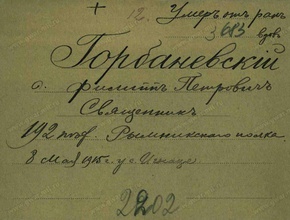 + 12. Умеръ отъ ранъ
3683 вдов.
Горбаневскій
о. Филиппъ Петровичъ
Священникъ
192 пѣх. Рымникскаго полка
8 Мая 1915 г. у с.
2202